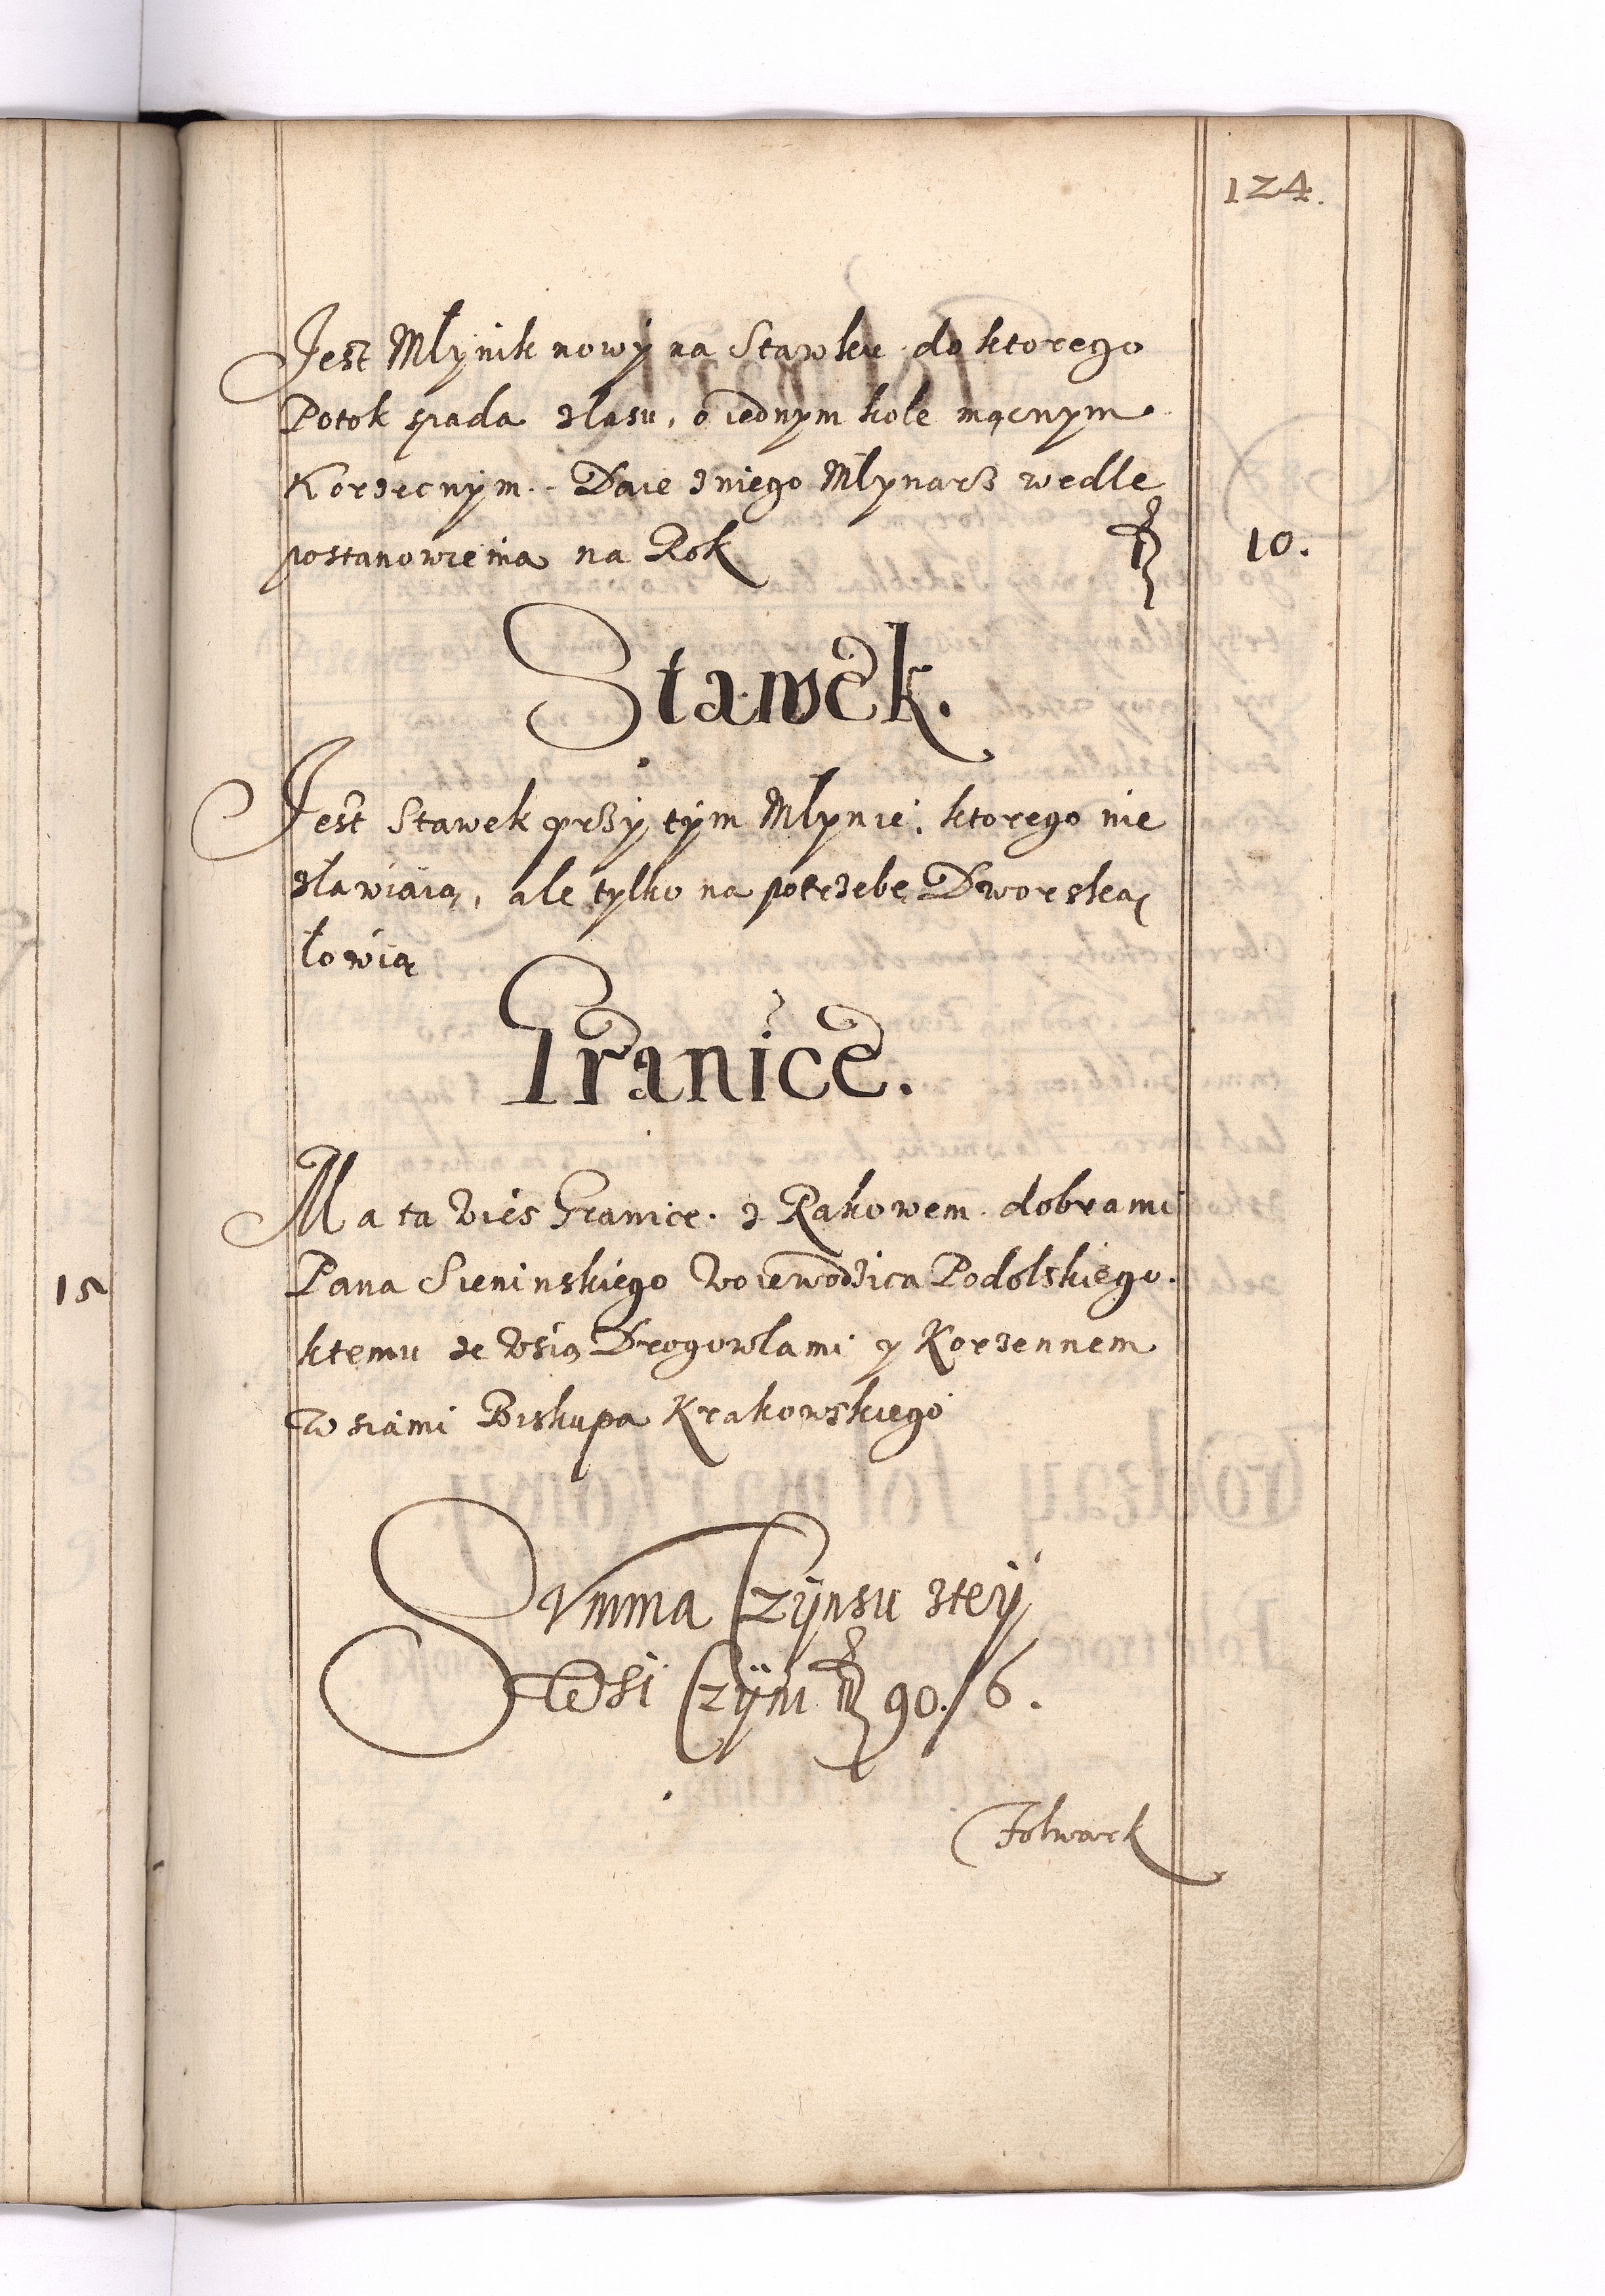 124.
Jest Młynik nowy na Stawku do ktorego
Potok spada zlasu, o iednym kole mącnym
Korzecnym. Daie zniego Młynarz wedle
postanowienia na Rok 10.
Stawek.
Jest Stawek przy tym Młynie, ktorego nie
stawiaią, ale tylko na potrzebę Dworską
łowią
Granice.
Ma ta Wieś Granice z Rakowem dobrami
Pana Sieninskiego Woiewodzica Podolskiego.
ktemu ze Wsią Drogowlami y Korzennem
Wsiami Biskupa Krakowskiego
Summa Czynsu ztey
Wsi Czyni 90./6.
Folwark
15